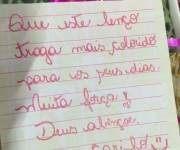 Que este lenço
traga mais colorido
para os seus dias.
Muita força y
Deus abençoe.